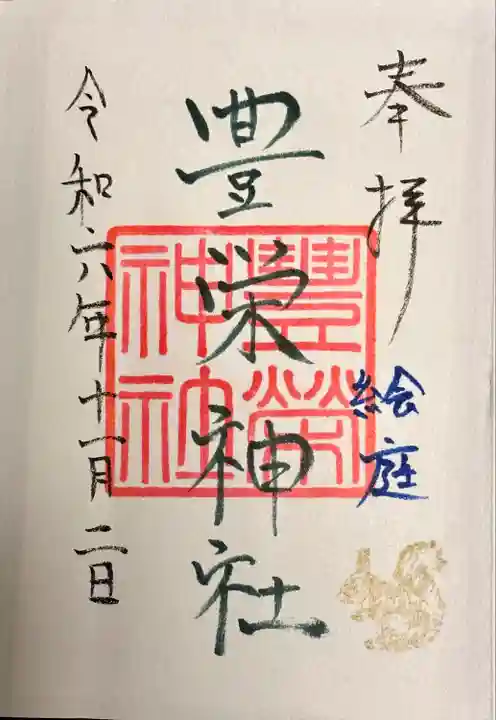 奉拝
絵庭
豊栄神社
豐榮神社
令和六年十一月二日